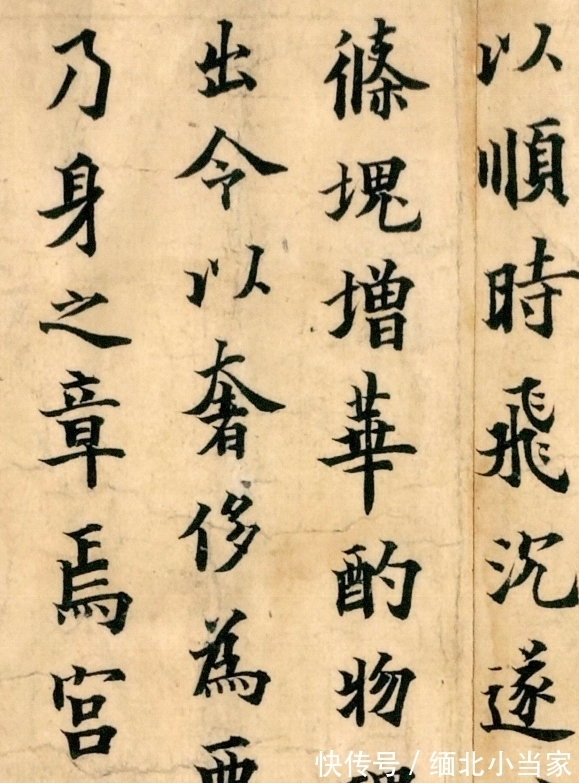 以順時飛沉遂
條塊增華酌物
出令以奢侈為
乃身之章焉宮
快传号 / 缅北小当家